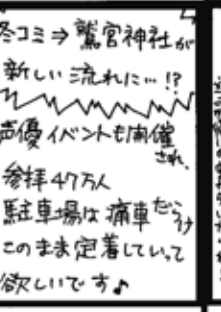 冬コミ⇒鷲宮神社が
新しい流れに…!?
声優イベントも開催
され、
参拝47万人
駐車場は痛車だらけ
このまま定着していって
欲しいです♪